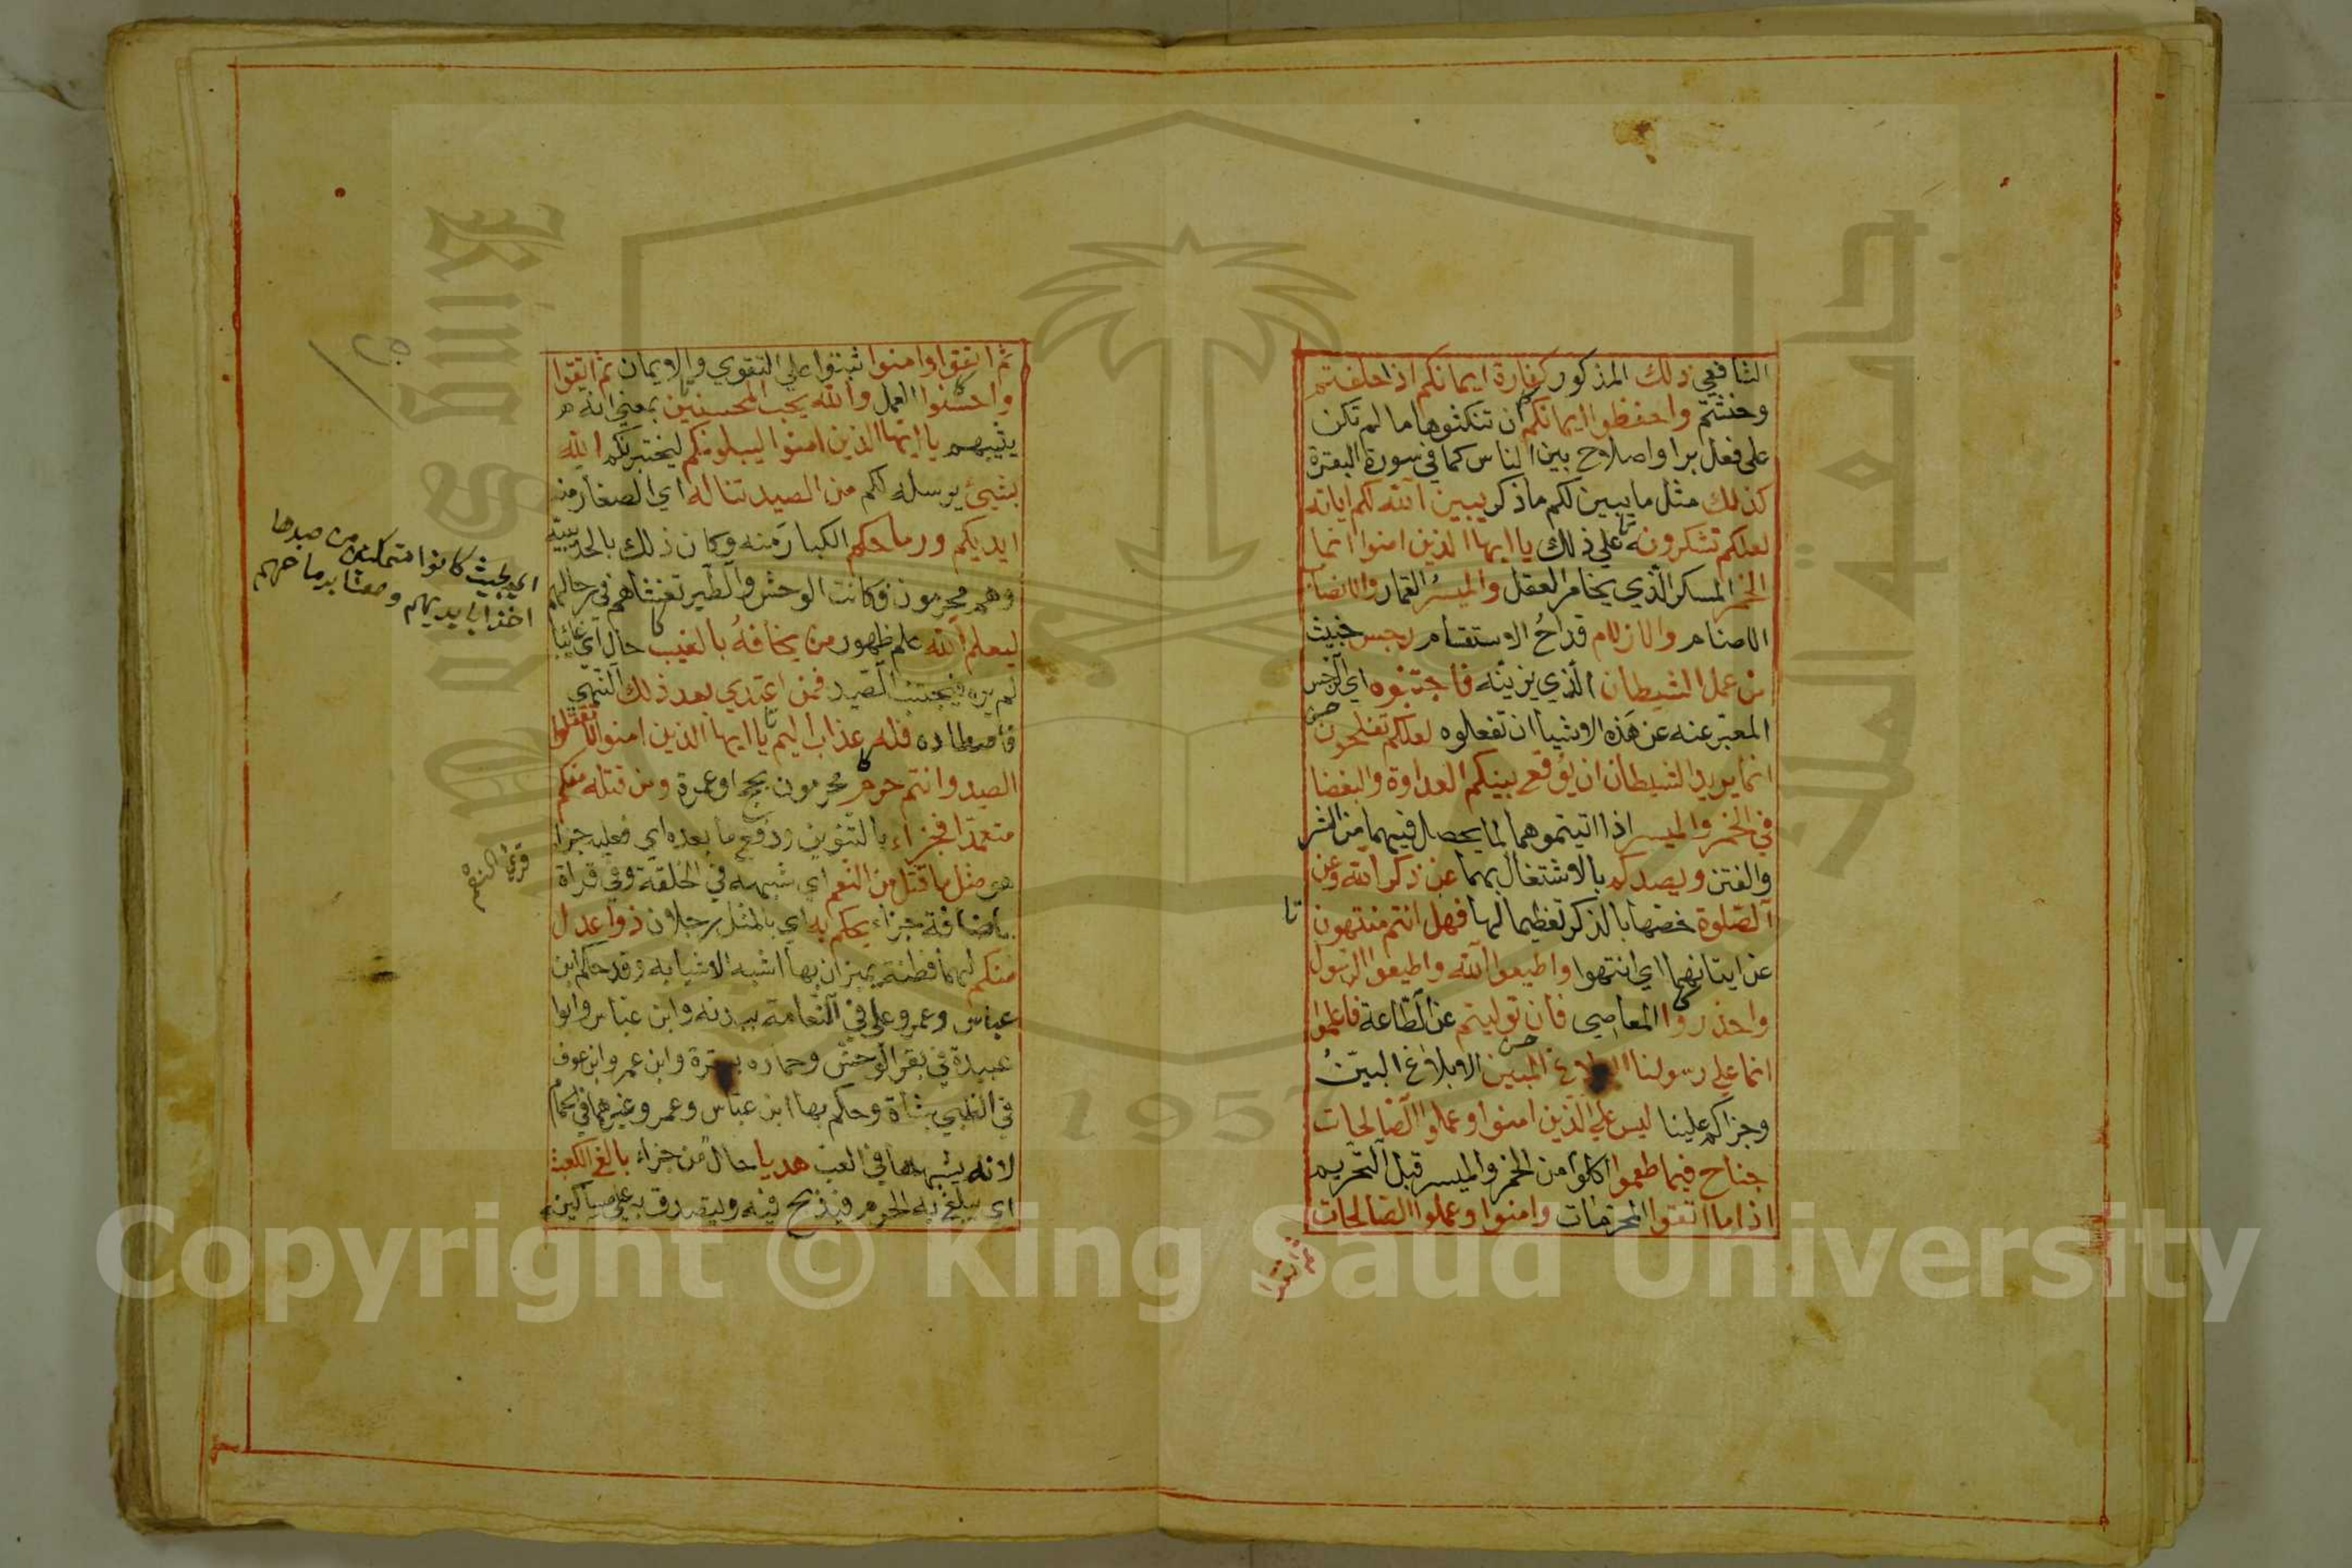 الشافعي ذلك المذكور كفارة ايمانكم اذا حلفتم
وحنثتم واحفظوا ايمانكم ان تنكثوها ما لم تكن
على فعل بر او اصلاح بين الناس كما في سورة البقرة
كذلك مثل ما يبين لكم ما ذكر يبين الله لكم اياته
لعلكم تشكرونه على ذلك يا ايها الذين امنوا انما
الخمر المسكر الذي يخامر العقل والميسر القمار والانصاب
الاصنام والازلام قداح الاستقسام رجس خبيث
من عمل الشيطان الذي يزينه فاجتنبوه اي الرجس
المعبر عنه عن هذه الاشيا ان تفعلوه لعلكم تفلحون
انما يريد الشيطان ان يوقع بينكم العداوة والبغضا
في الخمر والميسر اذا اتيتموهما لما يحصل فيهما من الشر
والفتن ويصدكم بالاشتغال بهما عن ذكر الله وعن
الصلوة خصها بالذكر تعظيما لها فهل انتم منتهون
عن اتيانهما اي انتهوا واطيعوا الله واطيعوا الرسول
واحذروا المعاصي فان توليتم عن الطاعة فاعلموا
انما على رسولنا البلاغ المبين الابلاغ البين
وجزاكم علينا ليس على الذين امنوا وعملوا الصالحات
جناح فيما طعموا اكلوا من الخمر والميسر قبل التحريم
اذا ما اتقوا المحرمات وامنوا وعملوا الصالحات
ثم اتقوا
ثم اتقوا وامنوا ثبتوا على التقوي والايمان ثم اتقوا
واحسنوا العمل والله يحب المحسنين بمعنى انه
يثيبهم يا ايها الذين امنوا ليبلونكم ليختبرنكم الله
بشيئ يرسله لكم من الصيد تناله اي الصغار منه
ايديكم ورماحكم الكبار منه وكان ذلك بالحديبية
وهم محرمون فكانت الوحش والطير تغشاهم في رحالهم
ليعلم الله علم ظهور من يخافه بالغيب حال اي غائبا
لم يره فيجتنب الصيد فمن اعتدي بعد ذلك النهي
فاصطاده فله عذاب اليم يا ايها الذين امنوا لا تقتلوا
الصيد وانتم حرم محرمون بحج او عمرة ومن قتله منكم
متعمدا فجزاء بالتنوين ورفع ما بعده اي فعليه جزا
هو مثل ما قتل من النعم اي شبهه في الخلقة وفي قراة
باضافة جزاء يحكم به اي بالمثل رجلان ذوا عدل
منكم لهما فطنة يميزان بها اشبه الاشيا به وقد حكم ابن
عباس وعمر وعلي في النعامة ببدنه وابن عباس وابوا
عبيدة في بقر الوحش وحماره ببقرة وابن عمر وابن عوف
في الظبي بشاة وحكم بها ابن عباس وعمر وغيرهما في الحمام
لانه يشبهها في العب هديا حال من جزاء بالغ الكعبة
اي يبلغ به الحرم فيذبح فيه ويتصدق به على مساكينه
اي بحيث كانوا متمكنين من صيدها
اخذا بايديهم وطعنا برماحهم
Copyright © King Saud University
جامعة الملك
1957